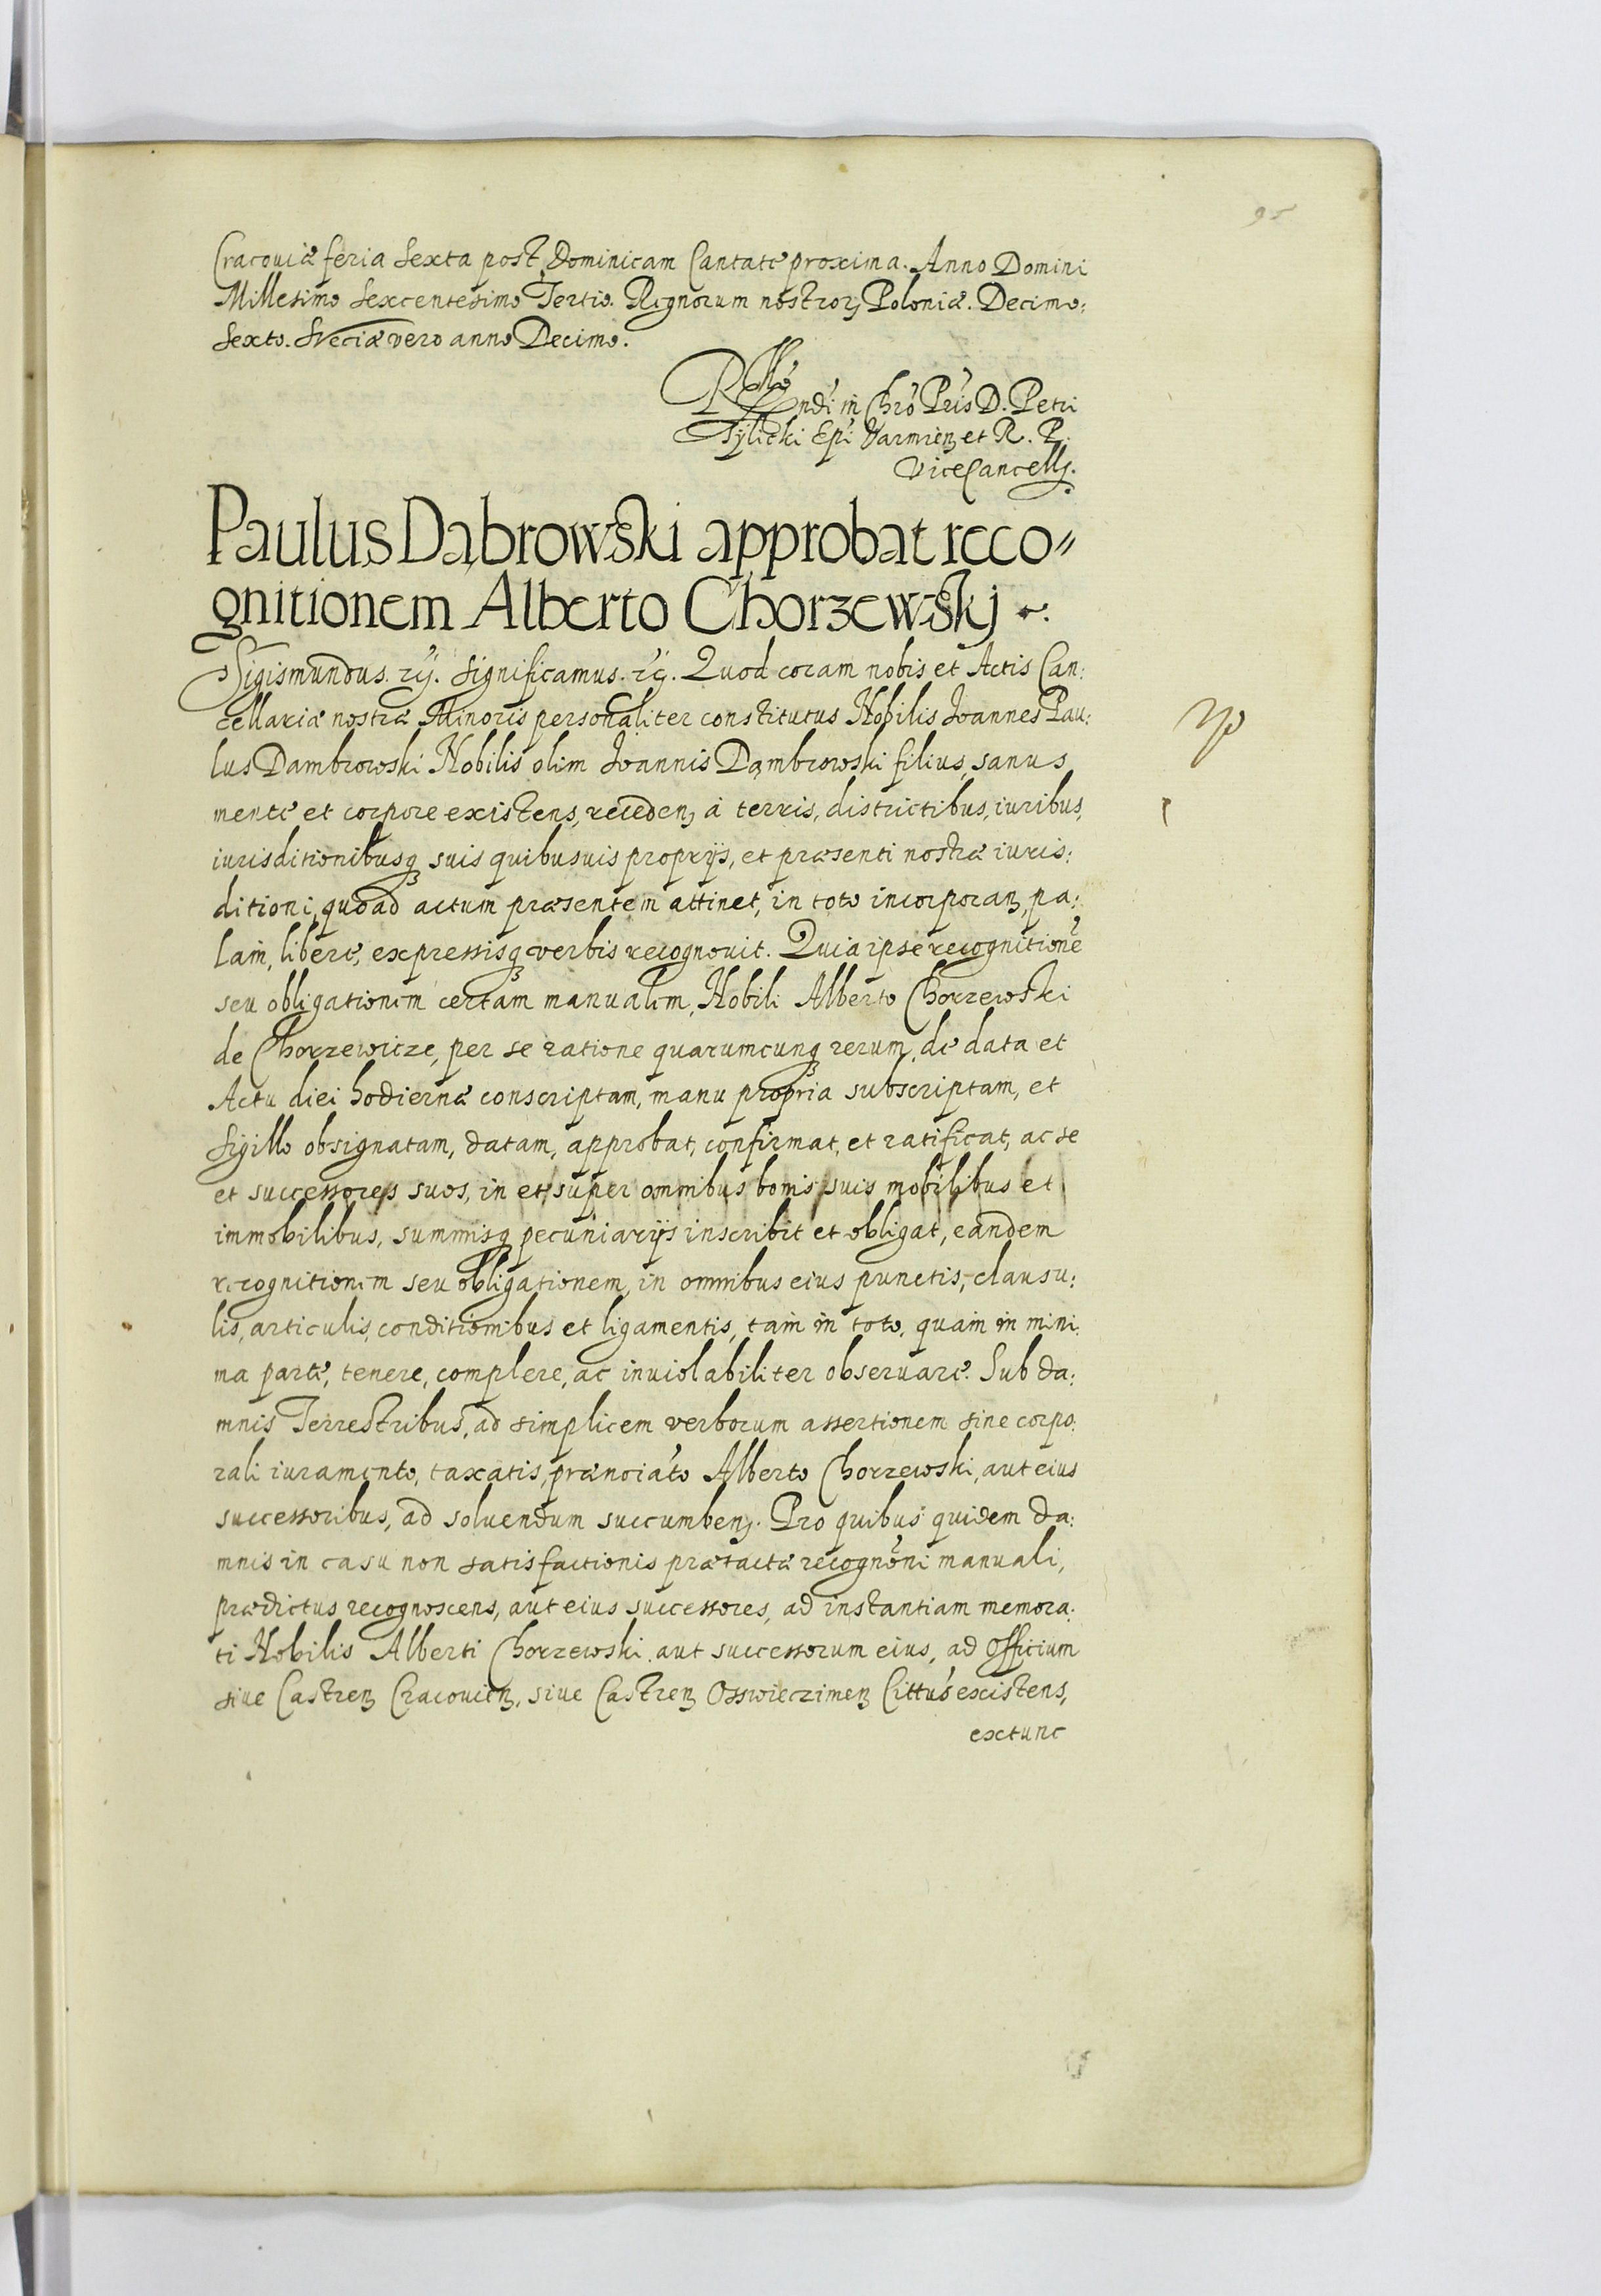 95
Cracouiæ feria Sexta post Dominicam Cantate proxima. Anno Domini
Millesimo Sexcentesimo Tertio. Regnorum nostror, Poloniæ. Decimo:
Sexto. Sveciæ vero anno Decimo.
Rello
Rndi in Chro Pris D. Petri
Tylicki Epi Varmien et R. P.
ViceCancell.
Paulus Dąbrowski approbat reco〃
gnitionem Alberto Chorzewskj
Sigismundus. rç. Significamus. rç. Quod coram nobis et Actis Can:
cellariæ nostræ Minoris personaliter constitutus Nobilis Joannes Pau:
lus Dambrowski Nobilis olim Joannis Dąmbrowski filius, sanus
mente et corpore existens, receden, á terris, districtibus, iuribus,
iurisditionibusq suis quibusuis proprijs, et præsenti nostræ iuris:
ditioni, quoad actum præsentem attinet, in toto incorporan, pa:
lam, libere, expressisq verbis recognouit. Quia ipse recognitione
seu obligationem certam manualem, Nobili Alberto Chorzewski
de Chorzewicze, per se ratione quarumcunq rerum, de data et
Actu diei hodiernæ conscriptam, manu propria subscriptam, et
sigillo obsignatam, datam, approbat, confirmat, et ratificat, ac se
et successores suos, in et super omnibus bonis suis mobilibus et
immobilibus, summisq pecuniarijs inscribit et obligat, eandem
recognitionem seu obligationem, in omnibus eius punctis, clausu:
lis, articulis, conditionibus et ligamentis, tam in toto, quam in mini:
ma parte, tenere, complere, ac inuiolabiliter obseruare. Sub da:
mnis Terrestribus, ad simplicem verborum assertionem sine corpo:
rali iuramento, taxatis, prænoiato Alberto Chorzewski, aut eius
successoribus, ad soluendum succumben. Pro quibus quidem da:
mnis in casu non satisfactionis prætactæ recognoni manuali,
prædictus recognoscens, aut eius successores, ad instantiam memora:
ti Nobilis Alberti Chorzewski, aut successorum eius, ad Officium
siue Castren Cracouien, siue Castren Osswieczimen Cittus existens,
extunc